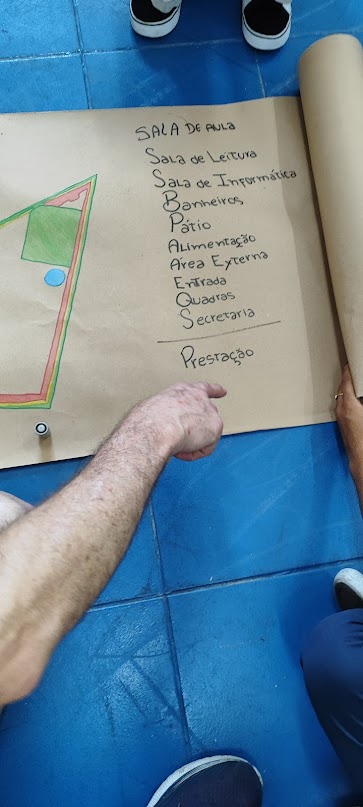 SALA DE AULA
Sala de Leitura
Sala de Informática
Banheiros
Pátio
Alimentação
Área Externa
Entrada
Quadras
Secretaria
Prestação